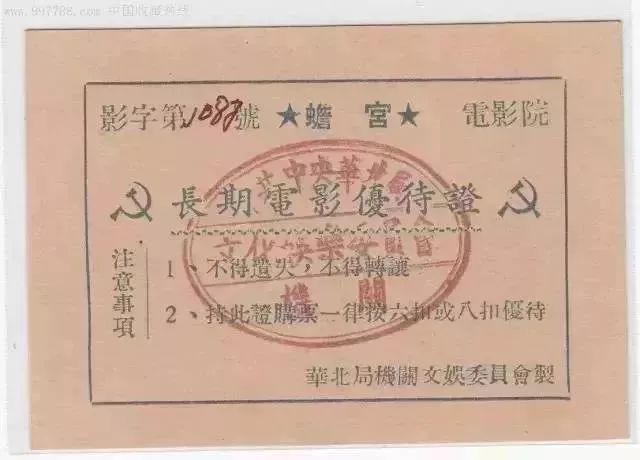 www.997788.com 中国收藏热线
影字第1087號 ★蟾宮★ 電影院
長期電影優待證
注意事項
1、不得遺失，不得轉讓
2、持此證購票一律按六扣或八扣優待
華北局機關文娛委員會製
中央華北局
文化娛樂委員會
機關